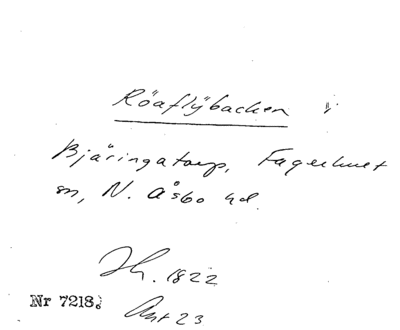 Röaflybacken i
Bjäringatorp, Fagerhult
sn, N. Åsbo hd.
Th. 1822
Nr 7218.
Ant 23